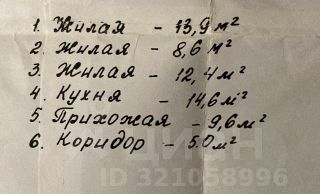 1. Жилая - 13,9 м²
2. Жилая - 8,6 м²
3. Жилая - 12,4 м²
4. Кухня - 14,6 м²
5. Прихожая - 9,6 м²
6. Коридор - 5.0 м²
ЦИАН
ID 321058996